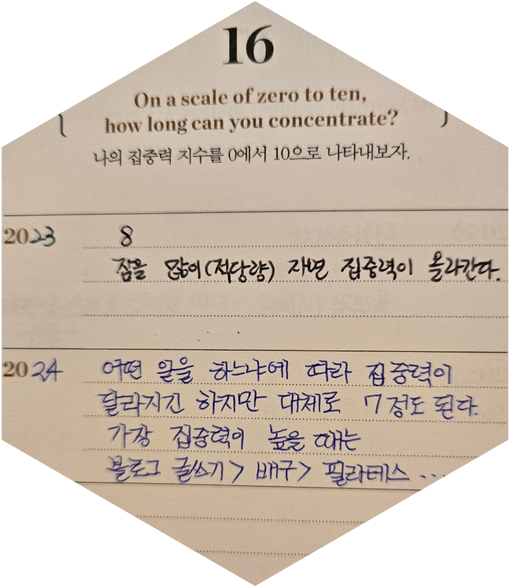 16
On a scale of zero to ten,
how long can you concentrate?
나의 집중력 지수를 0에서 10으로 나타내보자.
2023 8
잠을 많이(적당량) 자면 집중력이 올라간다.
2024 어떤 일을 하느냐에 따라 집중력이
달라지긴 하지만 대체로 7정도 된다.
가장 집중력이 높을 때는
블로그 글쓰기 > 배구 > 필라테스 ...